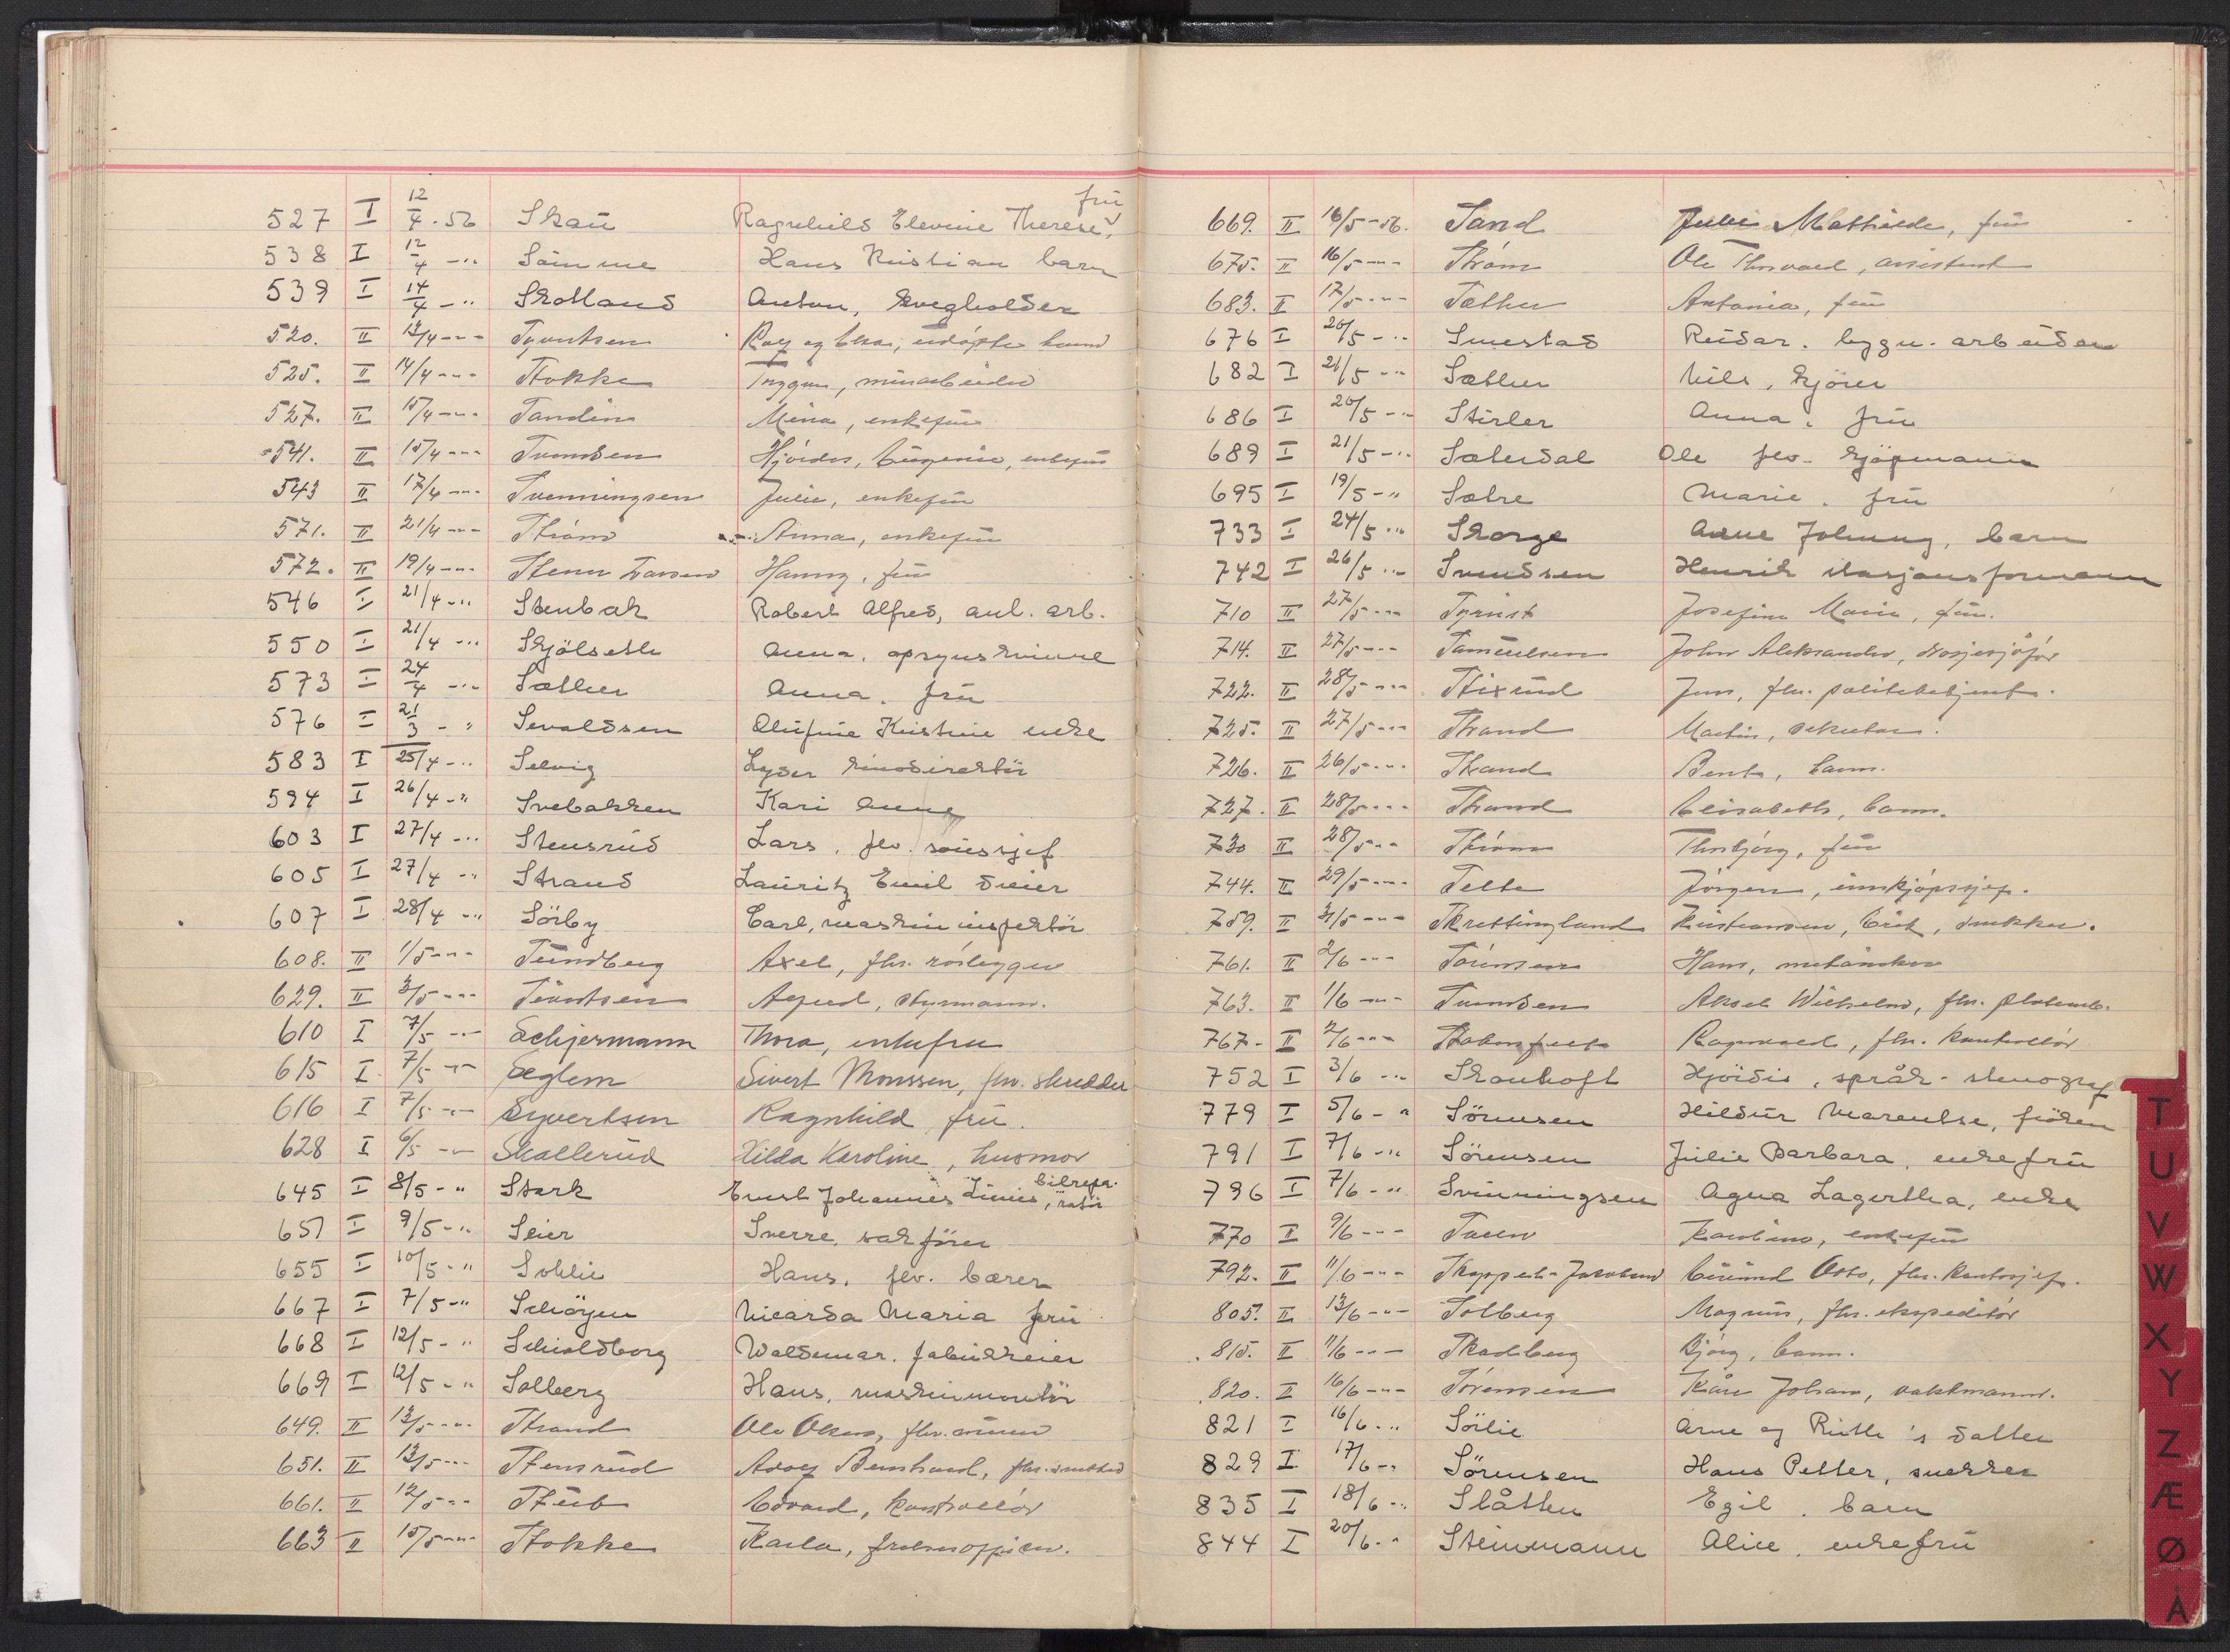 527 I 12/4-56 Skau Ragnhild Elevine Therese, frü
538 I 12/4 -"- Sömme Hans Kristian barn
539 I 14/4 -"- Skotland Anton, kvegholder
520. II 13/4 -"- Syvertsen Roy og barn
525. II 14/4 -"- Stokke Trygve, minearbeider
527. II 15/4 -"- Sandin Mina, enkefrü
541. II 15/4 -"- Svendsen Hjördis, Eugenie, enkefrü
543 II 17/4 -"- Svenningsen Julie, enkefrü
571. II 21/4 -"- Ström Anna, enkefrü
572. II 19/4 -"- Steen Larsen Hanny, frü
546 I 21/4 -"- Stenbak Robert Alfred, anl. arb.
550 I 21/4 -"- Skjölseth Anna, opsynskvinne
573 I 24/4 -"- Sæther Anna, frü
576 I 21/3 -"- Sevaldsen Olüfine Kristine enke
583 I 25/4 -"- Selvig Lyder kinodirektör
594 I 26/4 -"- Svebakken Kari Anne
603 I 27/4 -"- Stensrüd Lars, fhv. soüssjef
605 I 27/4 -"- Strand Lauritz Emil dreier
607 I 28/4 -"- Sörby Carl, maskininspektör
608. II 1/5 -"- Sündberg Axel, fhv. rörlegger
629. II 3/5 -"- Sivertsen styrmann.
610 I 7/5 -"- Schjermann Thora, enkefru
615 I 7/5 -"- Seglem Sivert Monssen, fhv. skredder
616 I 7/5 -"- Syvertsen Ragnhild frü.
628 I 6/5 -"- Skallerüd Hilda Karoline, husmor
645 I 8/5 -"- Stark Ernst Johannes Linus, bilreparatör
651 I 9/5 -"- Seier Sverre, sakförer
655 I 10/5 -"- Sohlie Hans, fhv. bærer
667 I 7/5 -"- Schöyen Nicarda Maria frü
668 I 12/5 -"- Schioldborg Waldemar. fabrikkeier
669 I 12/5 -"- Solberg Hans, maskinmontör
649. II 13/5 -"- Strand Ole Olsen, fhv. murer
651. II 13/5 -"- Stensrüd Adolf Bernhard, fhv. snekker
661. II 12/5 -"- Stüb Edvard, kontrollör
663 II 15/5 -"- Stokke Karla, frelsesoffiser.
669. II 16/5-56. Sand Julie Mathilde, frü
675. II 16/5 -"- Ström Ole Thorvald, assistent
683. II 17/5 -"- Sæther Antonia, frü
676 I 20/5 -"- Smestad Reidar. bygn. arbeider
682 I 21/5 -"- Sæther Nils, kjörer
686 I 20/5 -"- Stirler Anna, frü
689 I 21/5 -"- Sæterdal Ole fhv. kjöpmann
695 I 19/5 -"- Sætre Marie, frü
733 I 24/5 -"- Skorge Arne Johnny, barn
742 I 26/5 -"- Svendsen Henrik stasjonsformann
710 II 27/5 -"- Syrist Josefine Marie, frü.
714. II 27/5 -"- Samuelsen John Aleksander, drosjesjåför
722. II 28/5 -"- Stixrüd Jens, fhv. politibetjent.
725. II 27/5 -"- Strand Martin, sekretær.
726. II 26/5 -"- Strand Bente, barn.
727. II 28/5 -"- Strand Elisabeth, barn.
730 II 28/5 -"- Ström Thorbjörg, frü
744. II 29/5 -"- Selte Jörgen, innkjöpssjef.
759. II 31/5 -"- Skrettingland Kristiansen, Erik, snekker.
761. II 2/6 -"- Sörensen Hans, mekaniker
763. II 1/6 -"- Svendsen Aksel Wilhelm, fhv. platearb.
767. II 2/6 -"- Ragnvald, fhv. kontrollör
752 I 3/6 -"- Skouhoft Hjördis, språk-stenograf
779 I 5/6 -"- Sörensen Hildur Marentse, fröken
791 I 7/6 -"- Sörensen Julie Barbara, enkefrü
796 I 7/6 -"- Svinningsen Agna Lagertha, enke
770 II 9/6 -"- Karoline, enkefrü
792. II 11/6 -"- Skappel-Jacobsen Eivind Otto, fhv. kontorsjef.
805. II 13/6 -"- Solberg Magnus, fhv. ekspeditör
815. II 11/6 -"- Stadberg Björg, barn.
820. II 16/6 -"- Sörensen Kåre Johan, vaktmann.
821 I 16/6 -"- Sörlie Arne og Ruth's datter
829 I 17/6 -"- Sörensen Hans Petter, snekker
835 I 18/6 -"- Slåtten Egil, barn
844 I 20/6 -"- Steinmann Alice, enkefrü
T
U
V
W
X
Y
Z
Æ
Ø
Å